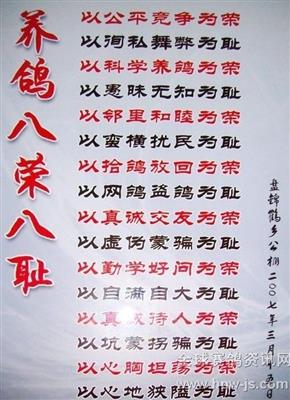 养鸽八荣八耻
以公平竞争为荣
以徇私舞弊为耻
以科学养鸽为荣
以愚昧无知为耻
以邻里和睦为荣
以蛮横扰民为耻
以拾鸽放回为荣
以网鸽盗鸽为耻
以真诚交友为荣
以虚伪蒙骗为耻
以勤学好问为荣
以自满自大为耻
以真诚待人为荣
以坑蒙拐骗为耻
以心胸坦荡为荣
以心地狭隘为耻
盘锦鹤乡公棚二00七年三月十五日
全球赛鸽资讯网
www.hnw-js.com